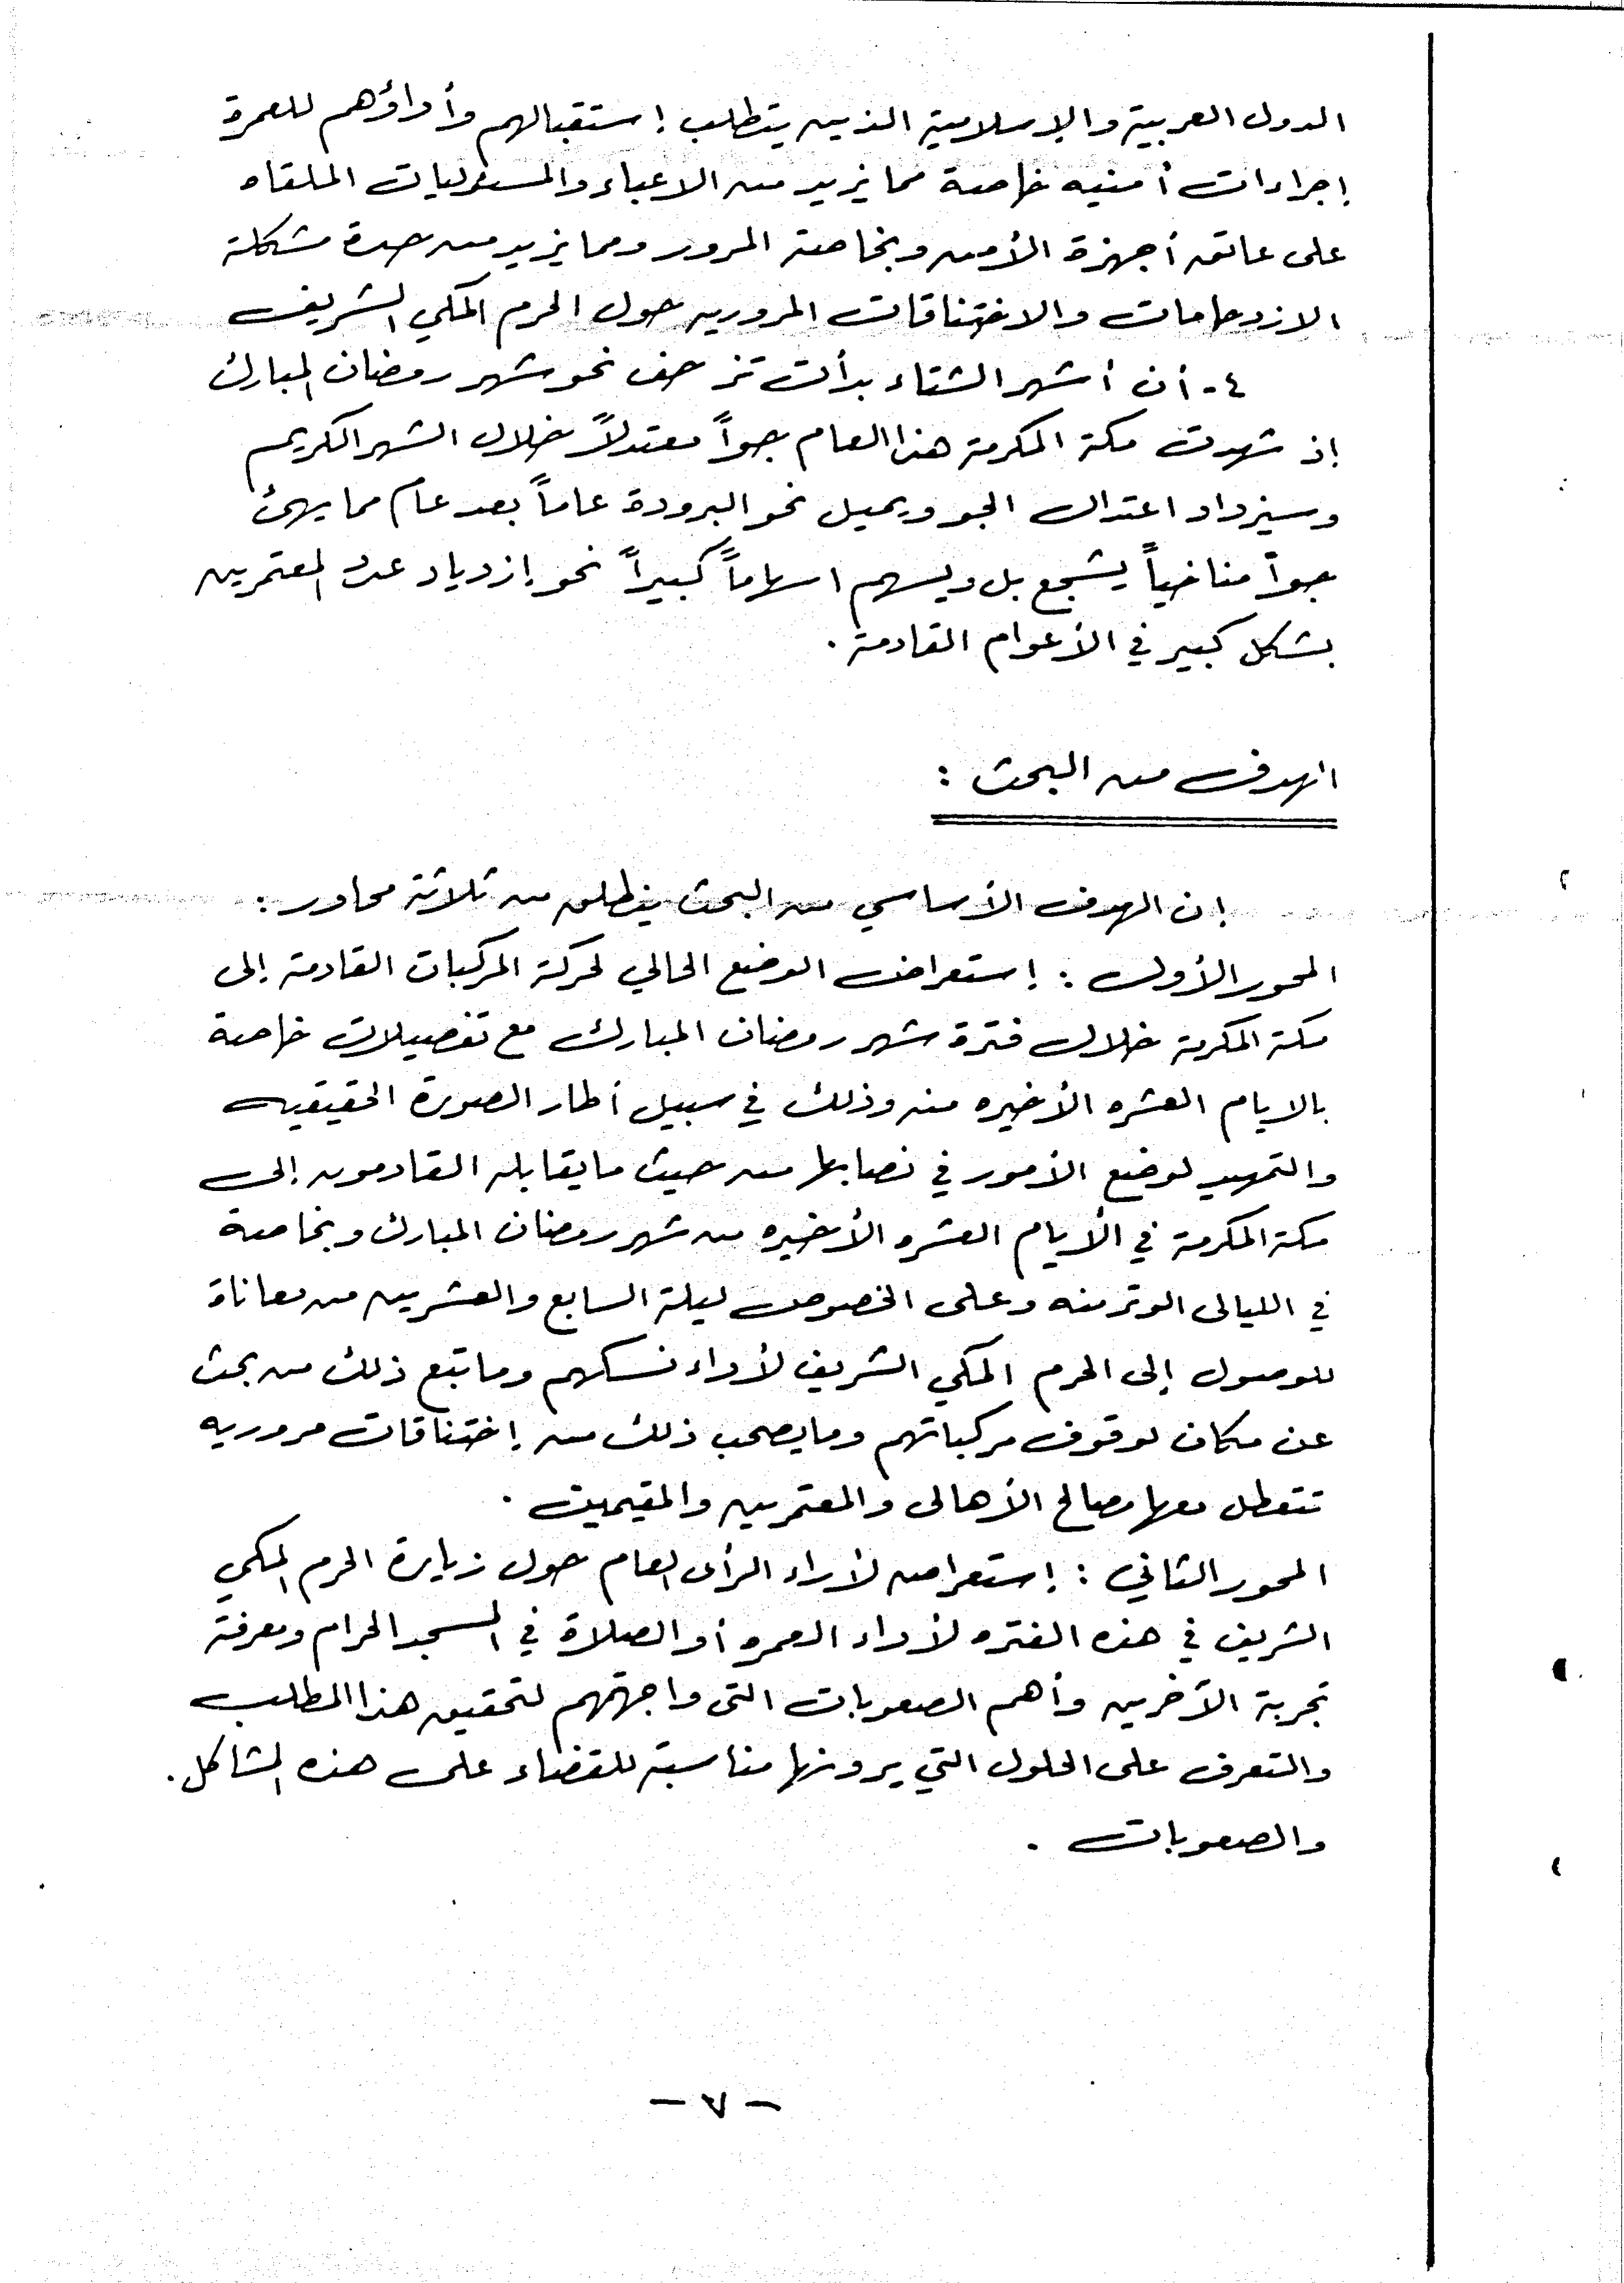 الدول العربية والإسلامية الذين يتطلب إستقبالهم وأداؤهم للعمرة
إجراءات أمنيه خاصة مما يزيد من الاعباء والمسئوليات الملقاه
على عاتق أجهزة الأمن وبخاصة المرور ومما يزيد من حدة مشكلة
الازدحامات والاختناقات المروريه حول الحرم المكي الشريف
٤- أن أشهر الشتاء بدأت تزحف نحو شهر رمضان المبارك
إذ شهدت مكة المكرمة هذا العام جواً معتدلاً خلال الشهر الكريم
وسيزداد اعتدال الجو ويميل نحو البرودة عاماً بعد عام مما يهئ
جواً مناخياً يشجع بل ويسهم اسهاماً كبيراً نحو إزدياد عدد المعتمرين
بشكل كبير في الأعوام القادمة .
الهدف من البحث :
إن الهدف الأساسي من البحث ينطلق من ثلاثة محاور :
المحور الأول : إستعراض الوضع الحالي لحركة المركبات القادمة إلى
مكة المكرمة خلال فترة شهر رمضان المبارك مع تفصيلات خاصة
بالايام العشره الأخيره منه وذلك في سبيل أطار الصورة الحقيقيه
والتمهيد لوضع الأمور في نصابها من حيث ما يقابله القادمون إلى
مكة المكرمة في الأيام العشره الأخيره من شهر رمضان المبارك وبخاصة
في الليالى الوتر منه وعلى الخصوص ليلة السابع والعشرين من معاناة
للوصول إلى الحرم المكي الشريف لأداء نسكهم وما تبع ذلك من بحث
عن مكان لوقوف مركباتهم وما يصحب ذلك من إختناقات مروريه
تتعطل معها مصالح الأهالى والمعتمرين والمقيمين .
المحور الثاني : إستعراض لأراء الرأى العام حول زيارة الحرم المكي
الشريف في هذه الفتره لأداء العمره أو الصلاة في المسجد الحرام ومعرفة
تجربة الآخرين وأهم الصعوبات التى واجهتهم لتحقيق هذا المطلب
والتعرف على الحلول التي يرونها مناسبة للقضاء على هذه المشاكل .
والصعوبات .
- ٧ -